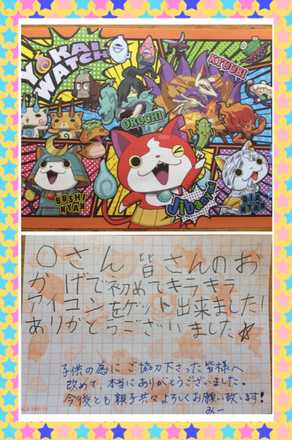 YO-KAI WATCH
KYUBI
OROCHI
JIBANYAN
BUSHI
NYAN
〇さん 皆さんのお
かげで初めてキラキラ
アイコンをゲット出来ました!
ありがとうございました☆
子供の為にご協力下さった皆様へ
改めて、本当にありがとうございました。
今後とも親子共々よろしくお願い致します!
みー